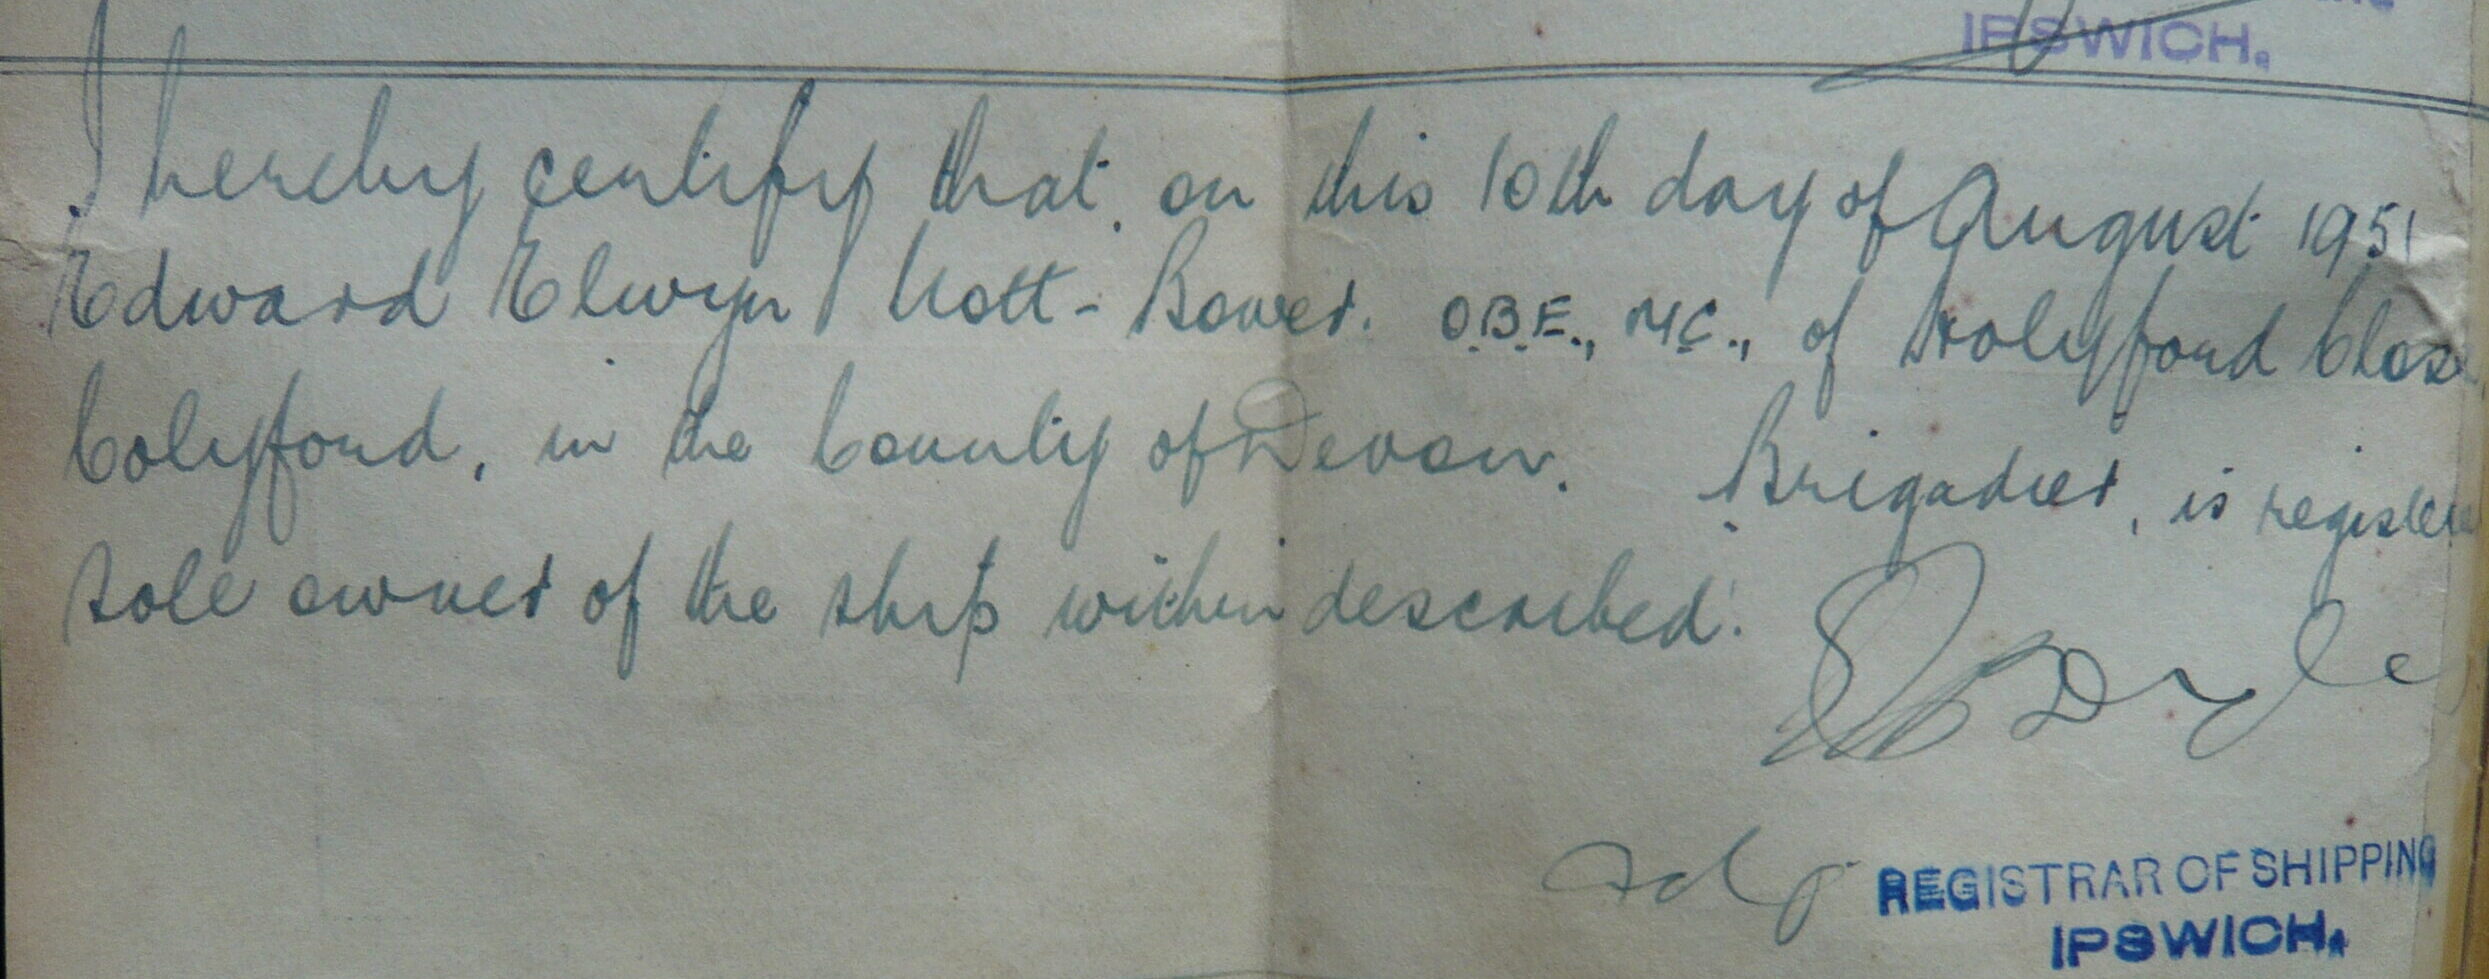 IPSWICH.
I hereby certify that, on this 10th day of August 1951
Edward Elwyn Nott-Bower. O.B.E., M.C., of Holyford Close
Colyford, in the County of Devon. Brigadier, is registered
sole owner of the ship within described.
REGISTRAR OF SHIPPING
IPSWICH.